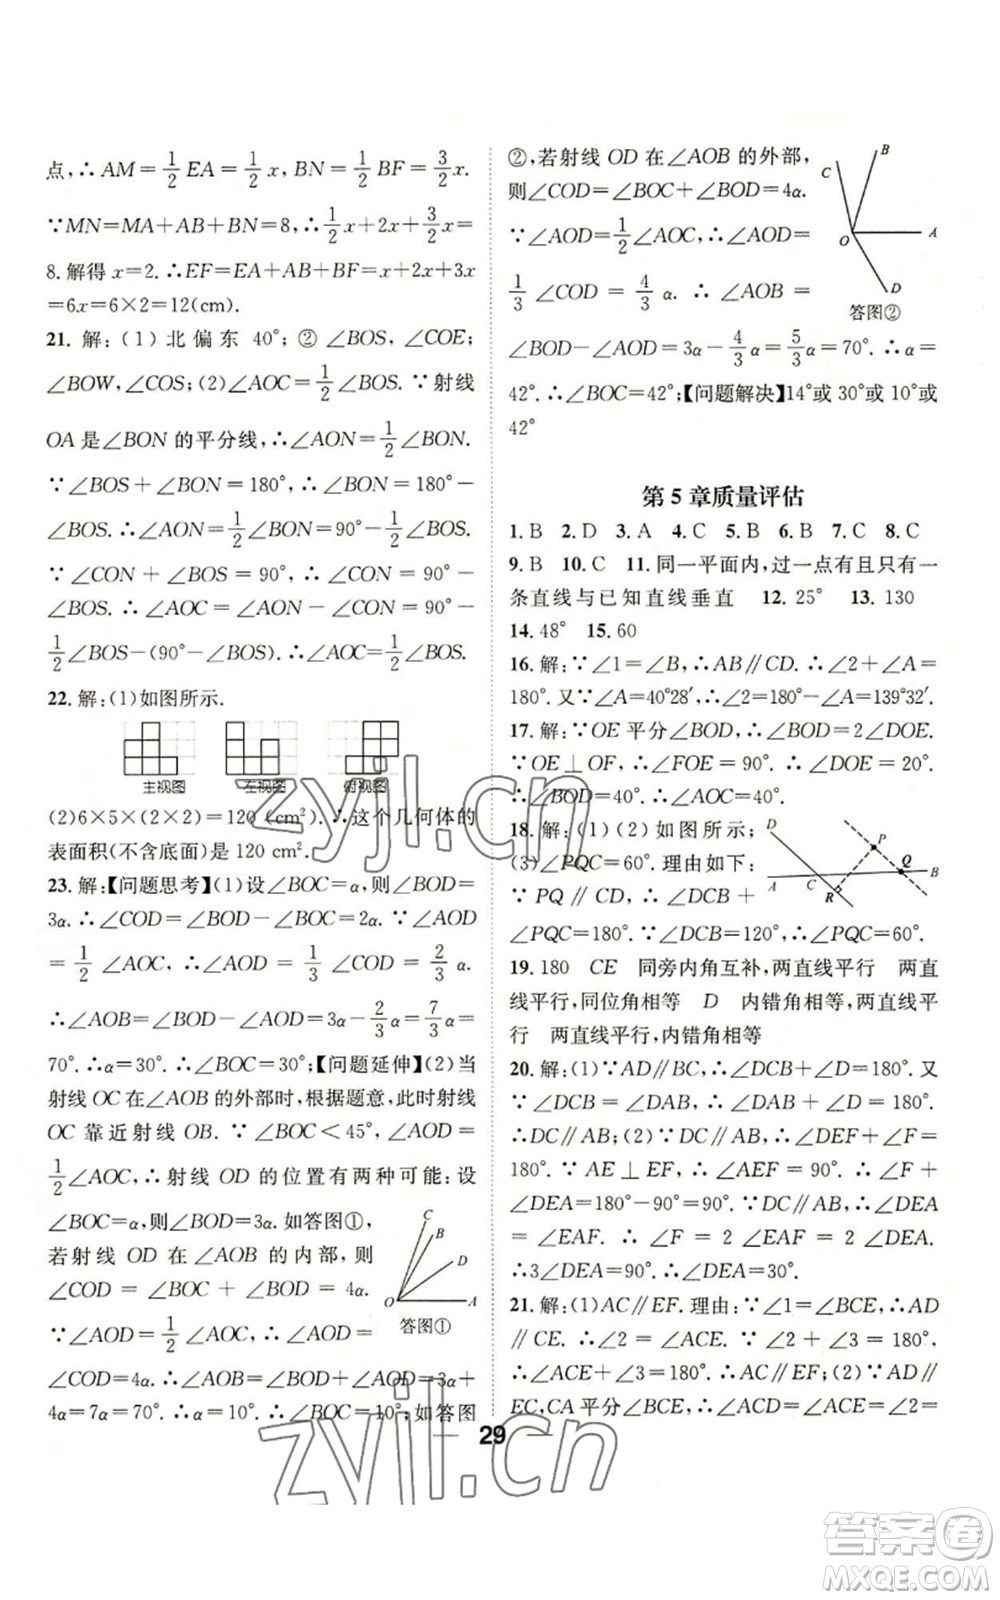 点,∴AM=1/2 EA=1/2 x, BN=1/2 BF=3/2 x.
∵MN=MA+AB+BN=8,∴1/2 x+2x+3/2 x=
8.解得 x=2.∴EF=EA+AB+BF=x+2x+3x
=6x=6×2=12(cm).
21. 解:(1) 北偏东 40°;② ∠BOS,∠COE;
∠BOW,∠COS;(2)∠AOC=1/2∠BOS.∵射线
OA 是∠BON 的平分线,∴∠AON=1/2∠BON.
∵∠BOS+∠BON=180°,∴∠BON=180°-
∠BOS.∴∠AON=1/2∠BON=90°-1/2∠BOS.
∵∠CON+∠BOS=90°,∴∠CON=90°-
∠BOS.∴∠AOC=∠AON-∠CON=90°-
1/2∠BOS-(90°-∠BOS).∴∠AOC=1/2∠BOS.
22. 解:(1)如图所示.
主视图 左视图 俯视图
(2)6×5×(2×2)=120(cm²).∴这个几何体的
表面积(不含底面)是 120 cm².
23. 解:【问题思考】(1)设∠BOC=α,则∠BOD=
3α.∴∠COD=∠BOD-∠BOC=2α.∵∠AOD
=1/2∠AOC,∴∠AOD=1/3∠COD=2/3 α.
∴∠AOB=∠BOD-∠AOD=3α-2/3 α=7/3 α=
70°.∴α=30°.∴∠BOC=30°;【问题延伸】(2)当
射线 OC 在∠AOB 的外部时,根据题意,此时射线
OC 靠近射线 OB.∵∠BOC<45°,∠AOD=
1/2∠AOC,∴射线 OD 的位置有两种可能:设
∠BOC=α,则∠BOD=3α.如答图①,
若射线 OD 在∠AOB 的内部,则
∠COD=∠BOC+∠BOD=4α.
∵∠AOD=1/2∠AOC,∴∠AOD=
C B D O A
答图①
∠COD=4α.∴∠AOB=∠BOD+∠AOD=3α+
4α=7α=70°.∴α=10°.∴∠BOC=10°;如答图
②,若射线 OD 在∠AOB 的外部,
则∠COD=∠BOC+∠BOD=4α.
∵∠AOD=1/2∠AOC,∴∠AOD=
1/3∠COD=4/3 α.∴∠AOB=
B C O A D
答图②
∠BOD-∠AOD=3α-4/3 α=5/3 α=70°.∴α=
42°.∴∠BOC=42°;【问题解决】14°或 30°或 10°或
42°
第 5 章质量评估
1. B 2. D 3. A 4. C 5. B 6. B 7. C 8. C
9. B 10. C 11. 同一平面内,过一点有且只有一
条直线与已知直线垂直 12. 25° 13. 130
14. 48° 15. 60
16. 解:∵∠1=∠K,∴AB∥CD.∴∠2+∠A=
180°.又∵∠A=40°28′,∴∠2=180°-∠A=139°32′.
17. 解:∵OE 平分∠BOD,∴∠BOD=2∠DOE.
∵OE⊥OF,∴∠EOF=90°.∴∠DOE=20°.
∴∠BOD=40°.∴∠AOC=40°.
18. 解:(1)(2)如图所示;
(3)∠PQC=60°.理由如下:
∵PQ∥CD,∴∠DCB+
D P Q A C R B
∠PQC=180°.∵∠DCB=120°,∴∠PQC=60°.
19. 180 CE 同旁内角互补,两直线平行 两直
线平行,同位角相等 D 内错角相等,两直线平
行 两直线平行,内错角相等
20. 解:(1)∵AD∥BC,∴∠DCB+∠D=180°.又
∵∠DCB=∠DAB,∴∠DAB+∠D=180°.
∴DC∥AB;(2)∵∠DEF+∠F=
180°.∵AE⊥EF,∴∠AEF=90°.∴∠F+
∠DEA=180°-90°=90°.∵DC∥AB,∴∠DEA
=∠EAF.∴∠F=2∠EAF=2∠DEA.
∴3∠DEA=90°.∴∠DEA=30°.
21. 解:(1)AC∥EF.理由:∵∠1=∠BCE,∴AD
∥CE.∴∠2=∠ACE.∵∠2+∠3=180°,
∴∠ACE+∠3=180°.∴AC∥EF;(2)∵AD∥
EC,CA 平分∠BCE,∴∠ACD=∠ACE=∠2=
29
zyjl.cn
zyjl.cn
答案圈
MXQE.COM